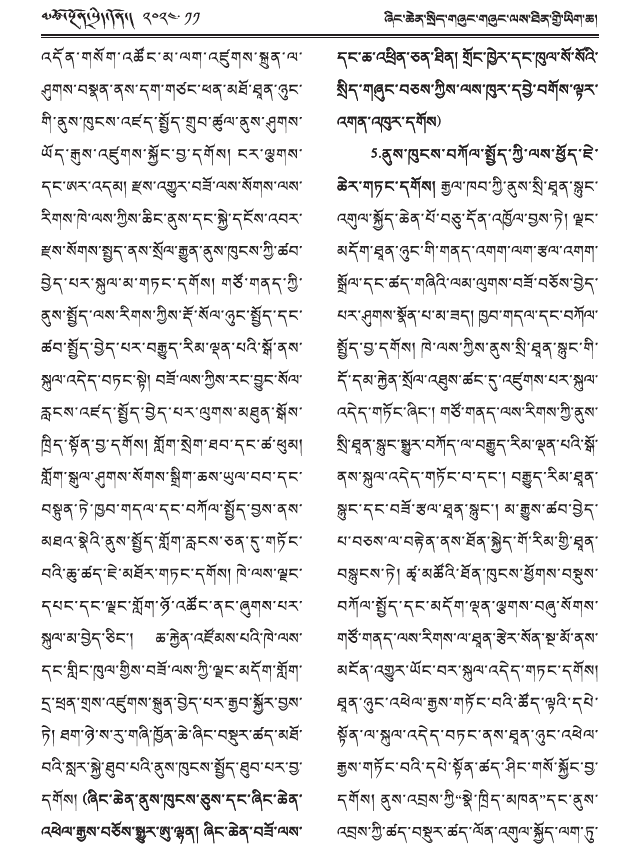 ༢༠༢༤.༡༡
ཞིང་ཆེན་སྲིད་གཞུང་གཞུང་ལས་ཐིན་གྱི་ཡིག་ཆ།
འདོན་གསོག་འཚོང་མ་ལག་འཛུགས་སྐྲུན་ལ་
ཤུགས་བསྣན་ནས་དག་གཙང་ཕན་མཐོ་ཐྲན་ཉུང་
གི་ནུས་ཁུངས་འཛད་སྤྱོད་གྲུབ་ཚུལ་ནུས་ཤུགས་
ཡོད་རྒུས་འཛུགས་སྐྱོང་བྱ་དགོས། ངར་ལྕགས་
དང་ཨར་འདམ། རྫས་འགྱུར་བཟོ་ལས་སོགས་ལས་
རིགས་ཁེ་ལས་ཀྱིས་ཆིང་ནུས་དང་སྐྱེ་དངོས་འབར་
རྫས་སོགས་སྤྱད་ནས་སྲོལ་རྒྱུན་ནུས་ཁུངས་ཀྱི་ཚབ་
བྱེད་པར་སྐུལ་མ་གཏང་དགོས། གཙོ་གནད་ཀྱི་
ནུས་སྤྱོད་ལས་རིགས་ཀྱིས་རྡོ་སོལ་ཉུང་སྤྱོད་དང་
ཚབ་སྤྱོད་བྱེད་པར་བརྒྱུད་རིམ་ལྡན་པའི་སྒོ་ནས་
སྐུལ་འདེད་བཏང་སྟེ། བཟོ་ལས་ཀྱིས་རང་བྱུང་སོལ་
རླངས་འཛད་སྤྱོད་བྱེད་པར་ལུགས་མཐུན་སྒོས་
ཁྲིད་སྟོན་བྱ་དགོས། གློག་སྲེག་ཐབ་དང་ཚ་ཕུམ།
གློག་སྒུལ་ཤུགས་སོགས་སྒྲིག་ཆས་ཡུལ་བབ་དང་
བསྟུན་ཏེ་ཁྱབ་གདལ་དང་བཀོལ་སྤྱོད་བྱས་ནས་
མཐའ་སྣེའི་ནུས་སྤྱོད་གློག་རླངས་ཅན་དུ་གཏོང་
བའི་ཆུ་ཚད་ཇེ་མཐོར་གཏང་དགོས། ཁེ་ལས་ལྗང་
དཔང་དང་ལྗང་གློག་ཉོ་འཚོང་ནང་ཞུགས་པར་
སྐུལ་མ་བྱེད་ཅིང་། ཆ་རྐྱེན་འཛོམས་པའི་ཁེ་ལས་
དང་གླིང་ཁུལ་གྱིས་བཟོ་ལས་ཀྱི་ལྗང་མདོག་གློག་
དྲ་ཕྲན་གྲས་འཛུགས་སྐྲུན་བྱེད་པར་རྒྱབ་སྐྱོར་བྱས་
ཏེ། ཐག་ཉེ་ས་རུ་གཞི་ཁྱོན་ཆེ་ཞིང་བསྡུར་ཚད་མཐོ་
བའི་སླར་སྐྱེ་ཐུབ་པའི་ནུས་ཁུངས་སྤྱོད་ཐུབ་པར་བྱ་
དགོས། (ཞིང་ཆེན་ནུས་ཁུངས་ཅུས་དང་ཞིང་ཆེན་
འཕེལ་རྒྱས་བཅོས་སྒྱུར་ཨུ་ལྷན། ཞིང་ཆེན་བཟོ་ལས་
དང་ཆ་འཕྲིན་ཅན་ཐིན། གྲོང་ཁྱེར་དང་ཁུལ་སོ་སོའི་
སྲིད་གཞུང་བཅས་ཀྱིས་ལས་ཁུར་དབྱེ་བགོས་ལྟར་
འགན་འཁུར་དགོས)
5.ནུས་ཁུངས་བཀོལ་སྤྱོད་ཀྱི་ལས་ཕྱོད་ཇེ་
ཆེར་གཏང་དགོས། རྒྱལ་ཁབ་ཀྱི་ནུས་སྲི་ཐྲན་སྐྱུང་
འགུལ་སྐྱོད་ཆེན་པོ་བཅུ་དོན་འཁྱོལ་བྱས་ཏེ། ལྗང་
མདོག་ཐྲན་ཉུང་གི་གནད་འགག་ལག་རྩལ་འགག་
སྒྲོལ་དང་ཚད་གཞིའི་ལམ་ལུགས་བཟོ་བཅོས་བྱེད་
པར་ཤུགས་སྣོན་པ་མ་ཟད། ཁྱབ་གདལ་དང་བཀོལ་
སྤྱོད་བྱ་དགོས། ཁེ་ལས་ཀྱིས་ནུས་སྲི་ཐྲན་སྐྱུང་གི་
དོ་དམ་རྐྱེན་སྲོལ་འཐུས་ཚང་དུ་འཛུགས་པར་སྐུལ་
འདེད་གཏོང་ཞིང་། གཙོ་གནད་ལས་རིགས་ཀྱི་ནུས་
སྲི་ཐྲན་སྐྱུང་སྒྱུར་བཀོད་ལ་བརྒྱུད་རིམ་ལྡན་པའི་སྒོ་
ནས་སྐུལ་འདེད་གཏོང་བ་དང་། བརྒྱུད་རིམ་ཐྲན་
སྐྱུང་དང་བཟོ་རྩལ་ཐྲན་སྐྱུང་། མ་རྒྱུས་ཚབ་བྱེད་
པ་བཅས་ལ་བརྟེན་ནས་ཐོན་སྐྱེད་གོ་རིམ་གྱི་ཐྲན་
བསྐྱུངས་ཏེ། ཚྭ་མཚོའི་ཐོན་ཁུངས་ཕྱོགས་བསྡུས་
བཀོལ་སྤྱོད་དང་མདོག་ལྡན་ལྕགས་བཞུ་སོགས་
གཙོ་གནད་ལས་རིགས་ལ་ཐྲན་རྩེར་སོན་སྔ་མོ་ནས་
མངོན་འགྱུར་ཡོང་བར་སྐུལ་འདེད་གཏང་དགོས།
ཐྲན་ཉུང་འཕེལ་རྒྱས་གཏོང་བའི་ཚོད་ལྟའི་དཔེ་
སྟོན་ལ་སྐུལ་འདེད་བཏང་ནས་ཐྲན་ཉུང་འཕེལ་
རྒྱས་གཏོང་བའི་དཔེ་སྟོན་ཚད་ཤིང་གསོ་སྐྱོང་བྱ་
དགོས། ནུས་འབྲས་ཀྱི“སྣེ་ཁྲིད་མཁན”དང་ནུས་
འབྲས་ཀྱི་ཚད་བསྡུར་ཚད་ལོན་འགུལ་སྐྱོད་ལག་ཏུ་